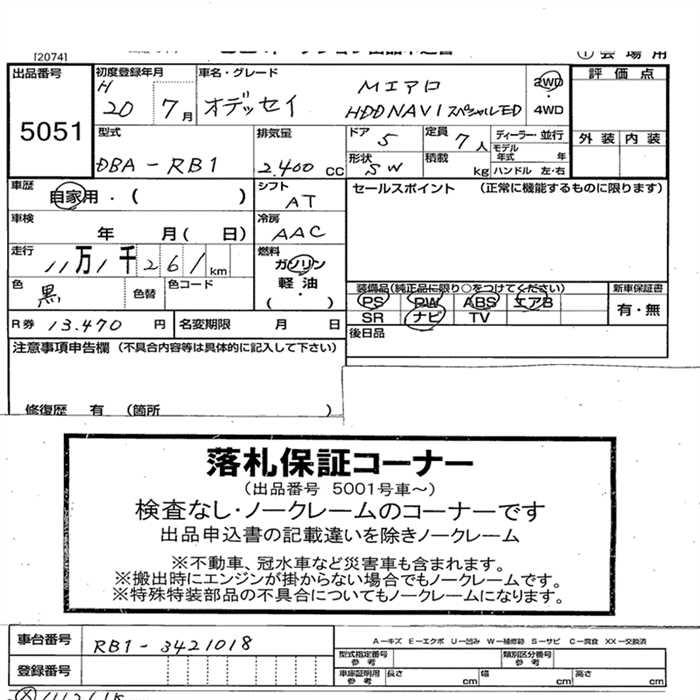 [2074]
①会場用
出品番号 5051
初度登録年月 H 20 7月
車名・グレード オデッセイ Mエアロ HDDNAVIスペシャルED
2WD・4WD
評価点
外装 内装
型式 DBA-RB1
排気量 2.400 CC
ドア 5
定員 7人
ディーラー・並行
モデル年式 年
形状 SW
積載 kg
ハンドル 左・右
車歴 自家用・( )
シフト AT
セールスポイント (正常に機能するものに限ります)
車検 年 月( 日)
冷房 AAC
走行 11万1千261km
燃料 ガソリン・軽油・( )
色 黒
色替
色コード
装備品(純正品に限り○をつけてください)
新車保証書
PS PW ABS エアB
有・無
SR ナビ TV
R券 13.470円
名変期限 月 日
後日品
注意事項申告欄 (不具合内容等は具体的に記入して下さい)
修復歴 有 (箇所 )
落札保証コーナー
(出品番号 5001号車～)
検査なし・ノークレームのコーナーです
出品申込書の記載違いを除きノークレーム
※不動車、冠水車など災害車も含まれます。
※搬出時にエンジンが掛からない場合でもノークレームです。
※特殊特装部品の不具合についてもノークレームになります。
車台番号 RB1-3421018
A－キズ E－エクボ U－凹み W－補修跡 S－サビ C－腐食 XX－交換済
型式指定番号 参考
類別区分番号 参考
登録番号
車庫証明用 参考 長さ cm 幅 cm 高さ cm